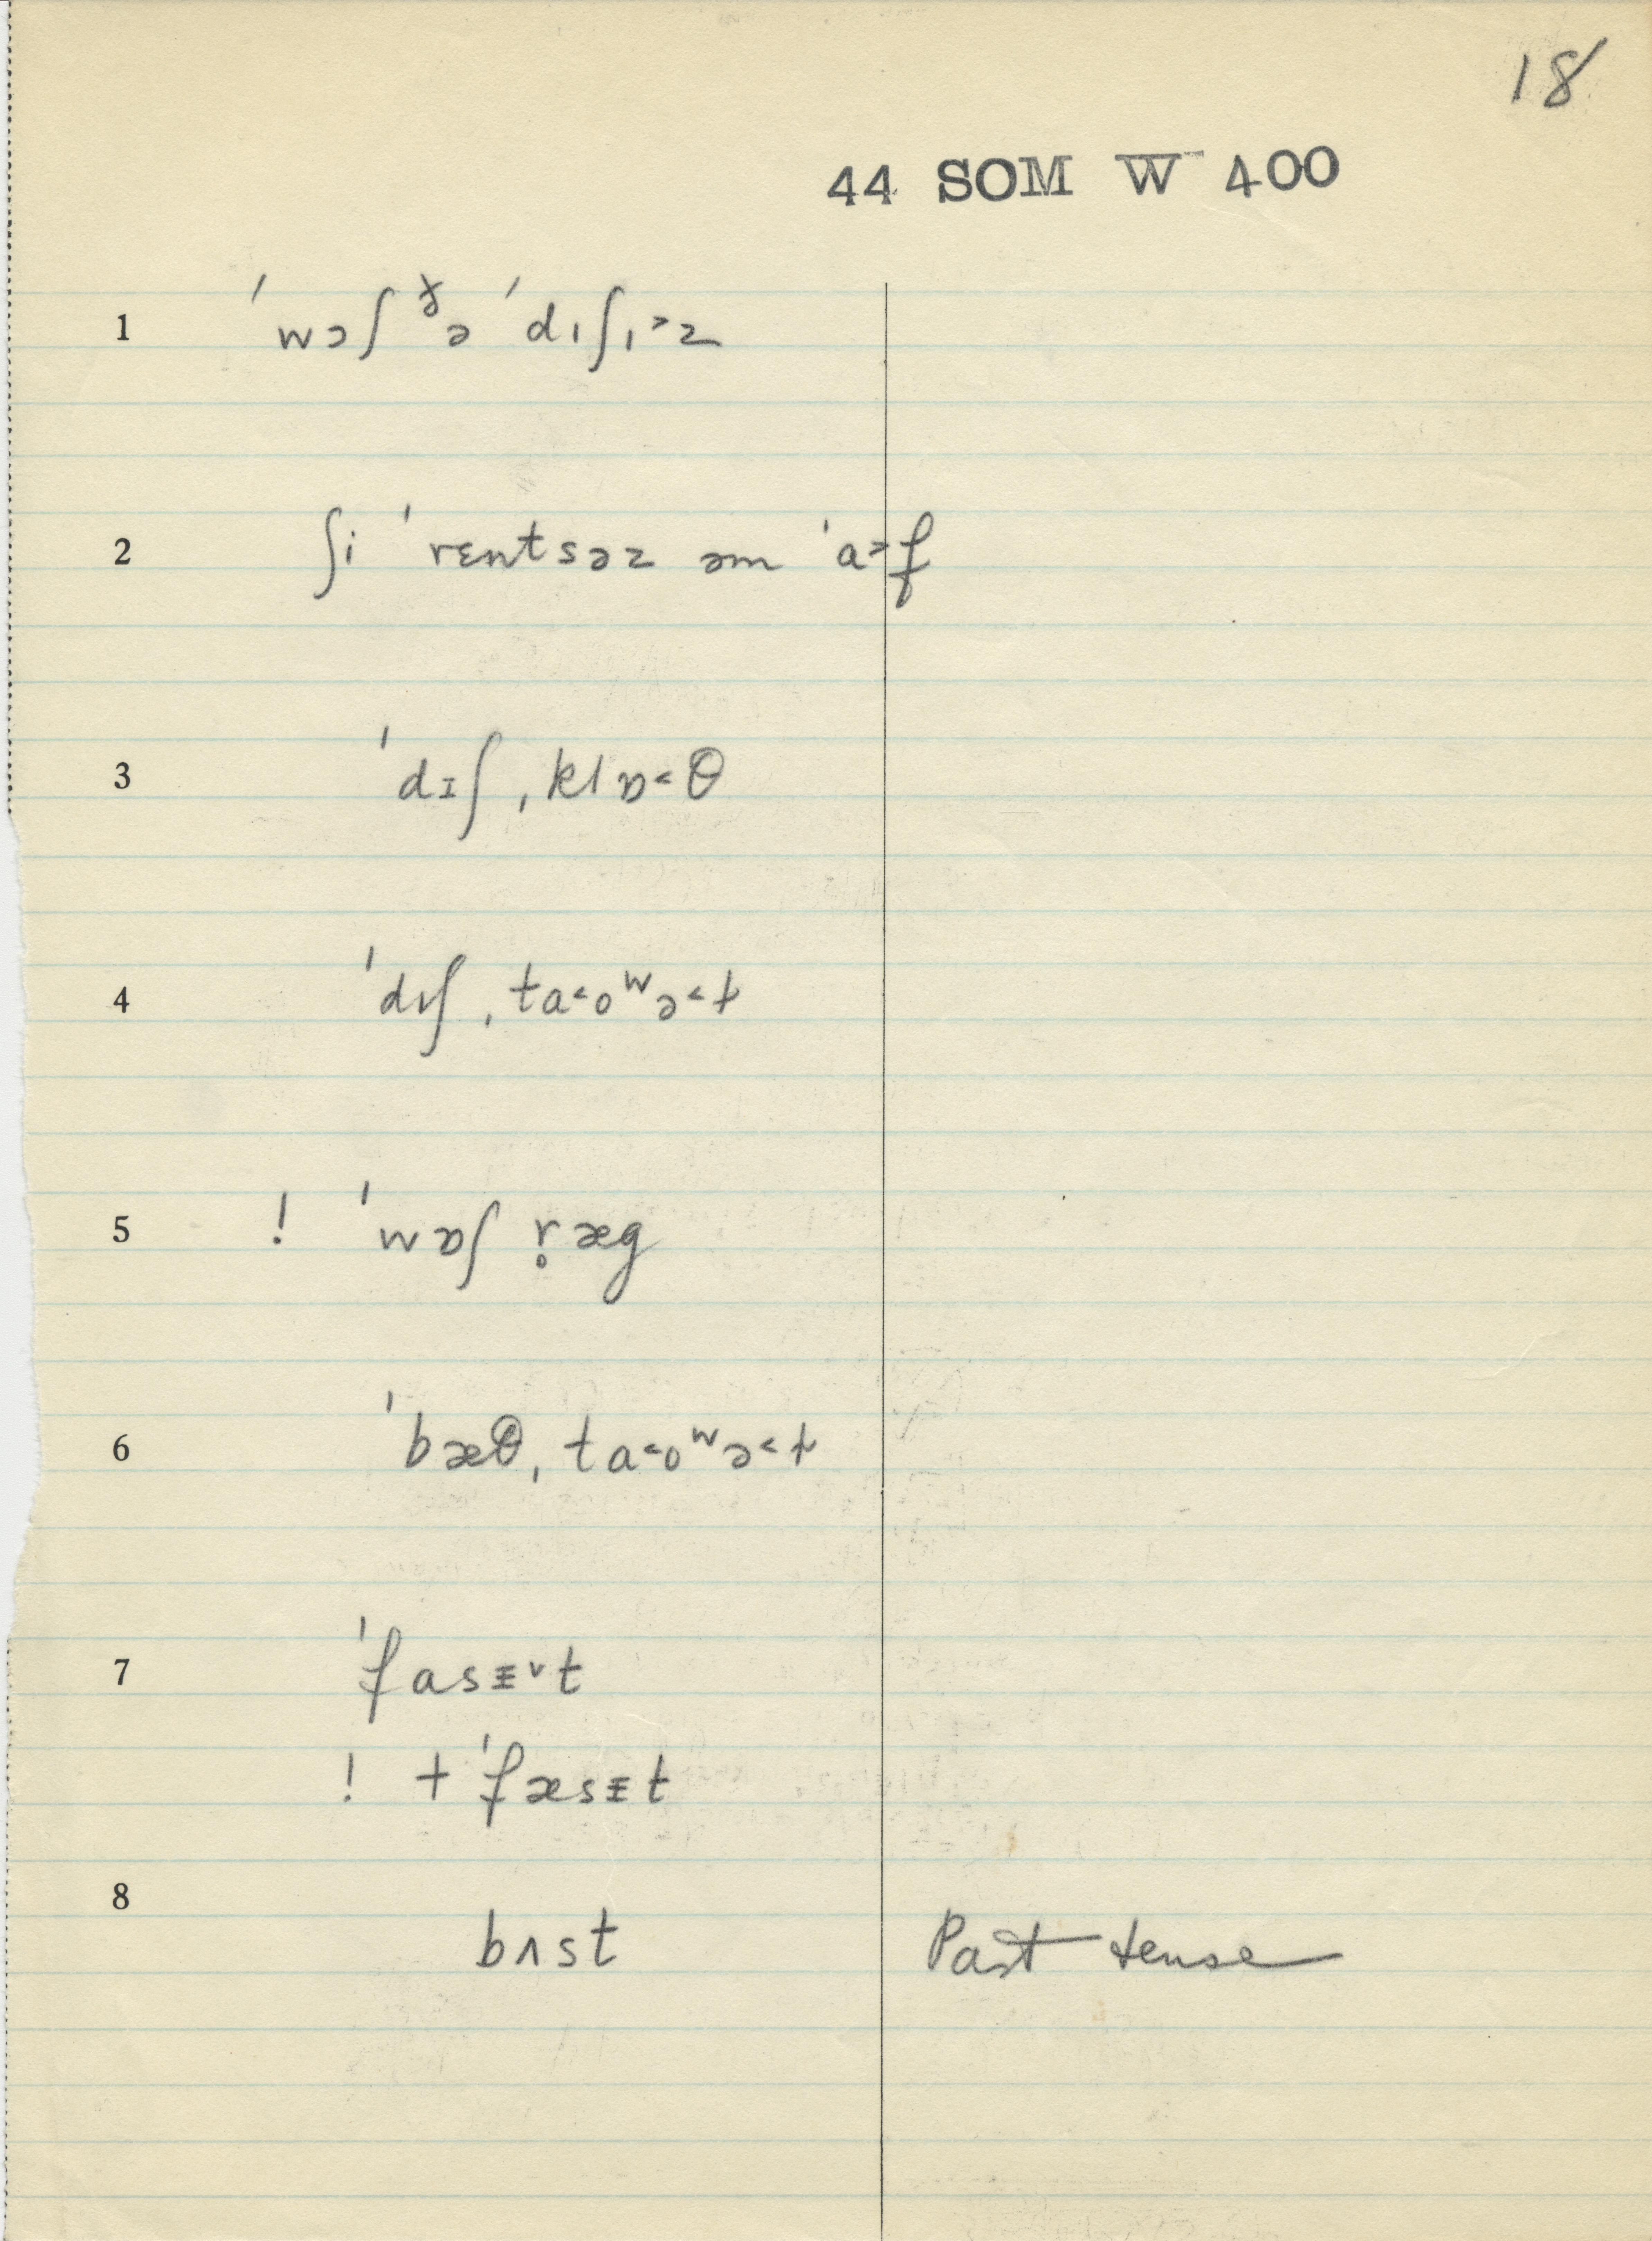 18
44 SOM W 400
1 ˈwɔʃ ðə ˈdɪʃɪ˃z
2 ʃi ˈrɛntsəz əm ˈa˃f
3 ˈdɪʃˌklɒ˂θ
4 ˈdɪʃˌta˂oʷə˂ɫ
5 ! ˈwɒʃ r̥æg
6 ˈbæθˌta˂oʷə˂ɫ
7 ˈfasᵻ˅t
! + ˈfæsᵻt
8 bʌst Past tense